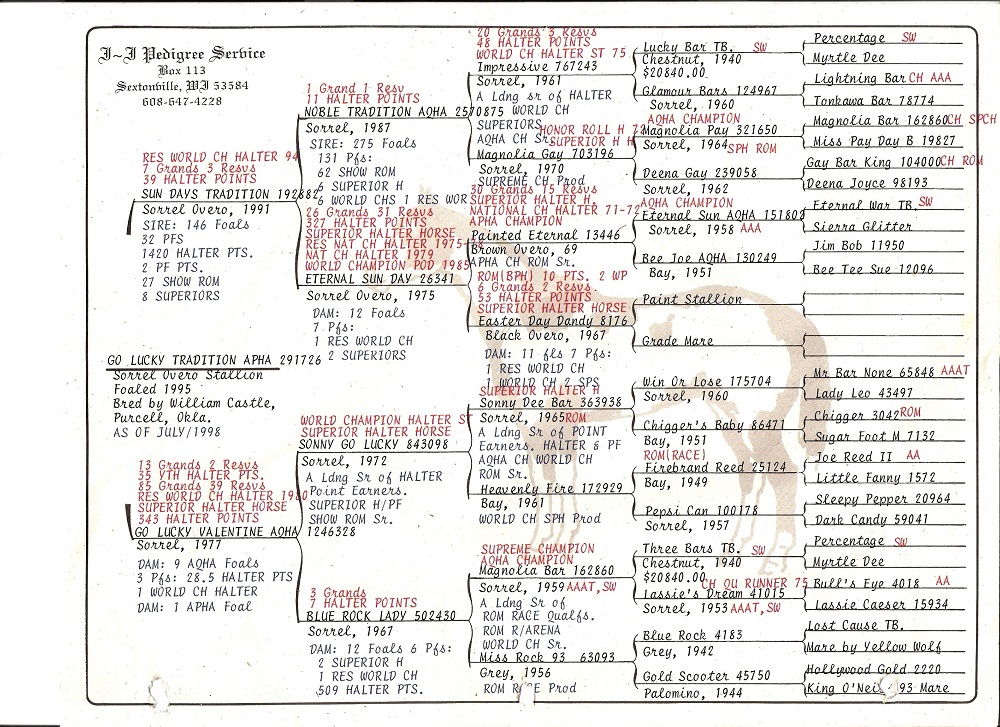 J~J Pedigree Service
Box 113
Sextonville, WI 53584
608-647-4228
GO LUCKY TRADITION APHA 291726
Sorrel Overo Stallion
Foaled 1995
Bred by William Castle,
Purcell, Okla.
AS OF JULY/1998
RES WORLD CH HALTER 94
7 Grands 3 Resvs
39 HALTER POINTS
SUN DAYS TRADITION 192882
Sorrel Overo, 1991
SIRE: 146 Foals
32 PFS
1420 HALTER PTS.
2 PF PTS.
27 SHOW ROM
8 SUPERIORS
13 Grands 2 Resvs
35 YTH HALTER PTS.
85 Grands 39 Resvs
RES WORLD CH HALTER 1980
SUPERIOR HALTER HORSE
343 HALTER POINTS
GO LUCKY VALENTINE AQHA 1246328
Sorrel, 1977
DAM: 9 AQHA Foals
3 Pfs: 28.5 HALTER PTS
1 WORLD CH HALTER
DAM: 1 APHA Foal
1 Grand 1 Resv
11 HALTER POINTS
NOBLE TRADITION AQHA 2570875
Sorrel, 1987
SIRE: 275 Foals
131 Pfs:
62 SHOW ROM
5 SUPERIOR H
6 WORLD CHS 1 RES WOR
26 Grands 31 Resvs
327 HALTER POINTS
SUPERIOR HALTER HORSE
RES NAT CH HALTER 1975-
NAT CH HALTER 1979
WORLD CHAMPION POD 1985
ETERNAL SUN DAY 26341
Sorrel Overo, 1975
DAM: 12 Foals
7 Pfs:
1 RES WORLD CH
2 SUPERIORS
WORLD CHAMPION HALTER ST
SUPERIOR HALTER HORSE
SONNY GO LUCKY 843098
Sorrel, 1972
A Ldng Sr of HALTER
Point Earners.
SUPERIOR H/PF
SHOW ROM Sr.
3 Grands
7 HALTER POINTS
BLUE ROCK LADY 502430
Sorrel, 1967
DAM: 12 Foals 6 Pfs:
2 SUPERIOR H
1 RES WORLD CH
509 HALTER PTS.
20 Grands 3 Resvs
48 HALTER POINTS
WORLD CH HALTER ST 75
Impressive 767243
Sorrel, 1961
A Ldng sr of HALTER
WORLD CH
SUPERIORS
AQHA CH Sr.
HONOR ROLL H 72
SUPERIOR H H
Magnolia Gay 703196
Sorrel, 1970
SUPREME CH Prod
30 Grands 15 Resvs
SUPERIOR HALTER H.
NATIONAL CH HALTER 71-72
APHA CHAMPION
Painted Eternal 13446
Brown Overo, 69
APHA CH ROM Sr.
ROM(BPH) 10 PTS. 2 WP
6 Grands 2 Resvs.
53 HALTER POINTS
SUPERIOR HALTER HORSE
Easter Day Dandy 8176
Black Overo, 1967
DAM: 11 fls 7 Pfs:
1 RES WORLD CH
1 WORLD CH 2 SPS
SUPERIOR HALTER H
Sonny Dee Bar 363938
Sorrel, 1965 ROM
A Ldng Sr of POINT
Earners. HALTER & PF
AQHA CH WORLD CH
ROM Sr.
Heavenly Fire 172929
Bay, 1961
WORLD CH SPH Prod
SUPREME CHAMPION
AQHA CHAMPION
Magnolia Bar 162860
Sorrel, 1959 AAAT, SW
A Ldng Sr of
ROM RACE Qualfs.
ROM R/ARENA
WORLD CH Sr.
Miss Rock 93 63093
Grey, 1956
ROM RACE Prod
Lucky Bar TB. SW
Chestnut, 1940
$20840.00
Glamour Bars 124967
Sorrel, 1960
AQHA CHAMPION
Magnolia Pay 321650
Sorrel, 1964 SPH ROM
Deena Gay 239058
Sorrel, 1962
AQHA CHAMPION
Eternal Sun AQHA 151802
Sorrel, 1958 AAA
Bee Joe AQHA 130249
Bay, 1951
Paint Stallion
Grade Mare
Win Or Lose 175704
Sorrel, 1960
Chigger's Baby 86471
Bay, 1951
ROM(RACE)
Firebrand Reed 25124
Bay, 1949
Pepsi Can 100178
Sorrel, 1957
Three Bars TB. SW
Chestnut, 1940
$20840.00
CH QU RUNNER 75
Lassie's Dream 41015
Sorrel, 1953 AAAT, SW
Blue Rock 4183
Grey, 1942
Gold Scooter 45750
Palomino, 1944
Percentage SW
Myrtle Dee
Lightning Bar CH AAA
Tonkawa Bar 78774
Magnolia Bar 162860 CH SPCH
Miss Pay Day B 19827
Gay Bar King 104000 CH ROM
Deena Joyce 98193
Eternal War TB. SW
Sierra Glitter
Jim Bob 11950
Bee Tee Sue 12096
Mr Bar None 65848 AAAT
Lady Leo 43497
Chigger 3042 ROM
Sugar Foot M 7132
Joe Reed II AA
Little Fanny 1572
Sleepy Pepper 20964
Dark Candy 59041
Percentage SW
Myrtle Dee
Bull's Eye 4018 AA
Lassie Caeser 15934
Lost Cause TB.
Mare by Yellow Wolf
Hollywood Gold 2220
King O'Nei 93 Mare